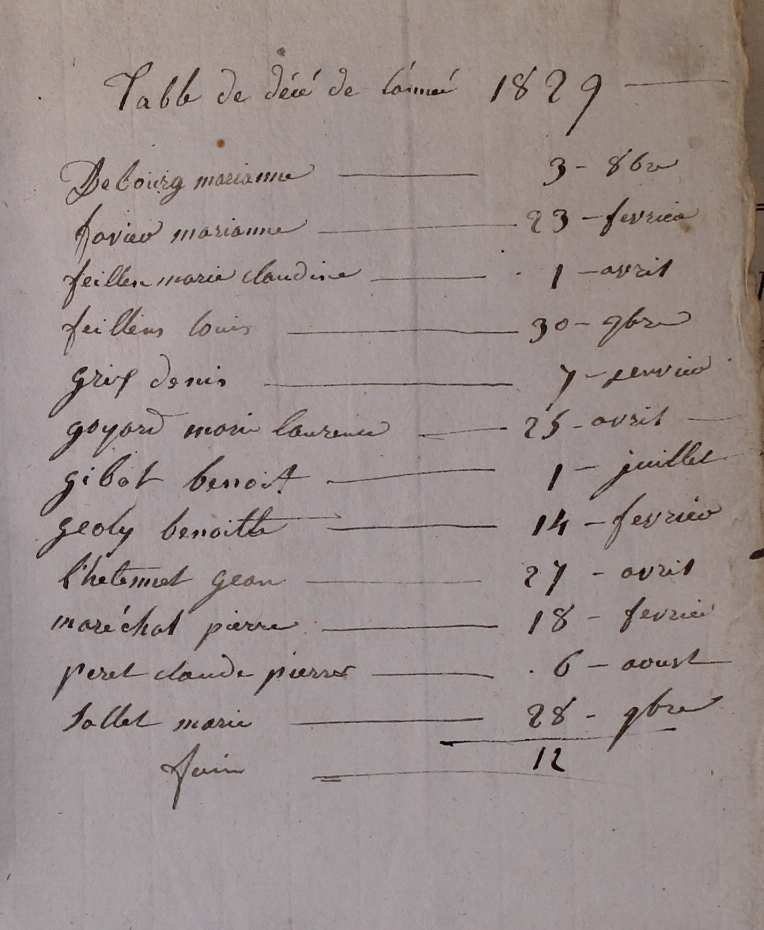 Table de décé de lánneé 1829
Debourg marianne 3 - 8bre
favier marianne 23 - fevrier
feillen marie claudine 1 - avril
feillens louis 30 - 9bre
gris denis 7 - jenvier
goyard marie laurence 25 - avril
gibot benoit 1 - juillet
geoly benoitte 14 - fevrier
gean 27 - avril
maréchal pierre 18 - fevrier
peret claude pierre 6 - aoust
Sallet marie 28 - 9bre
fain 12